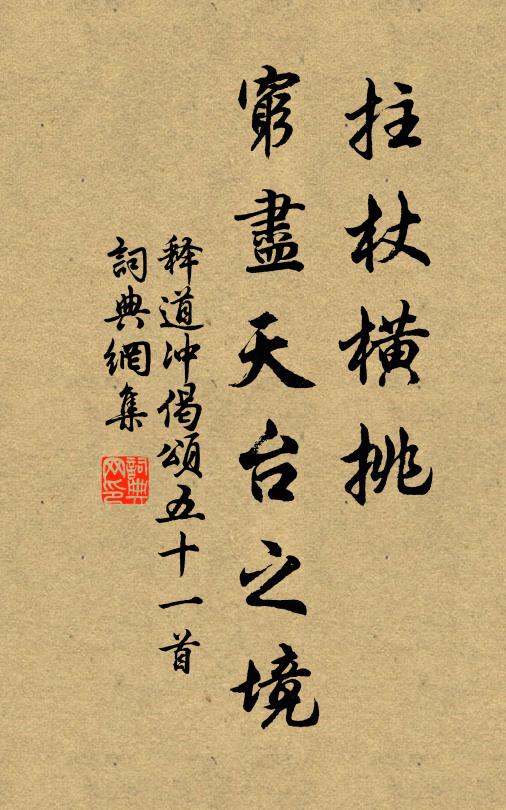 拄杖横挑
窮盡天台之境
释道冲偈頌五十一首
詞典網集
詞典网印